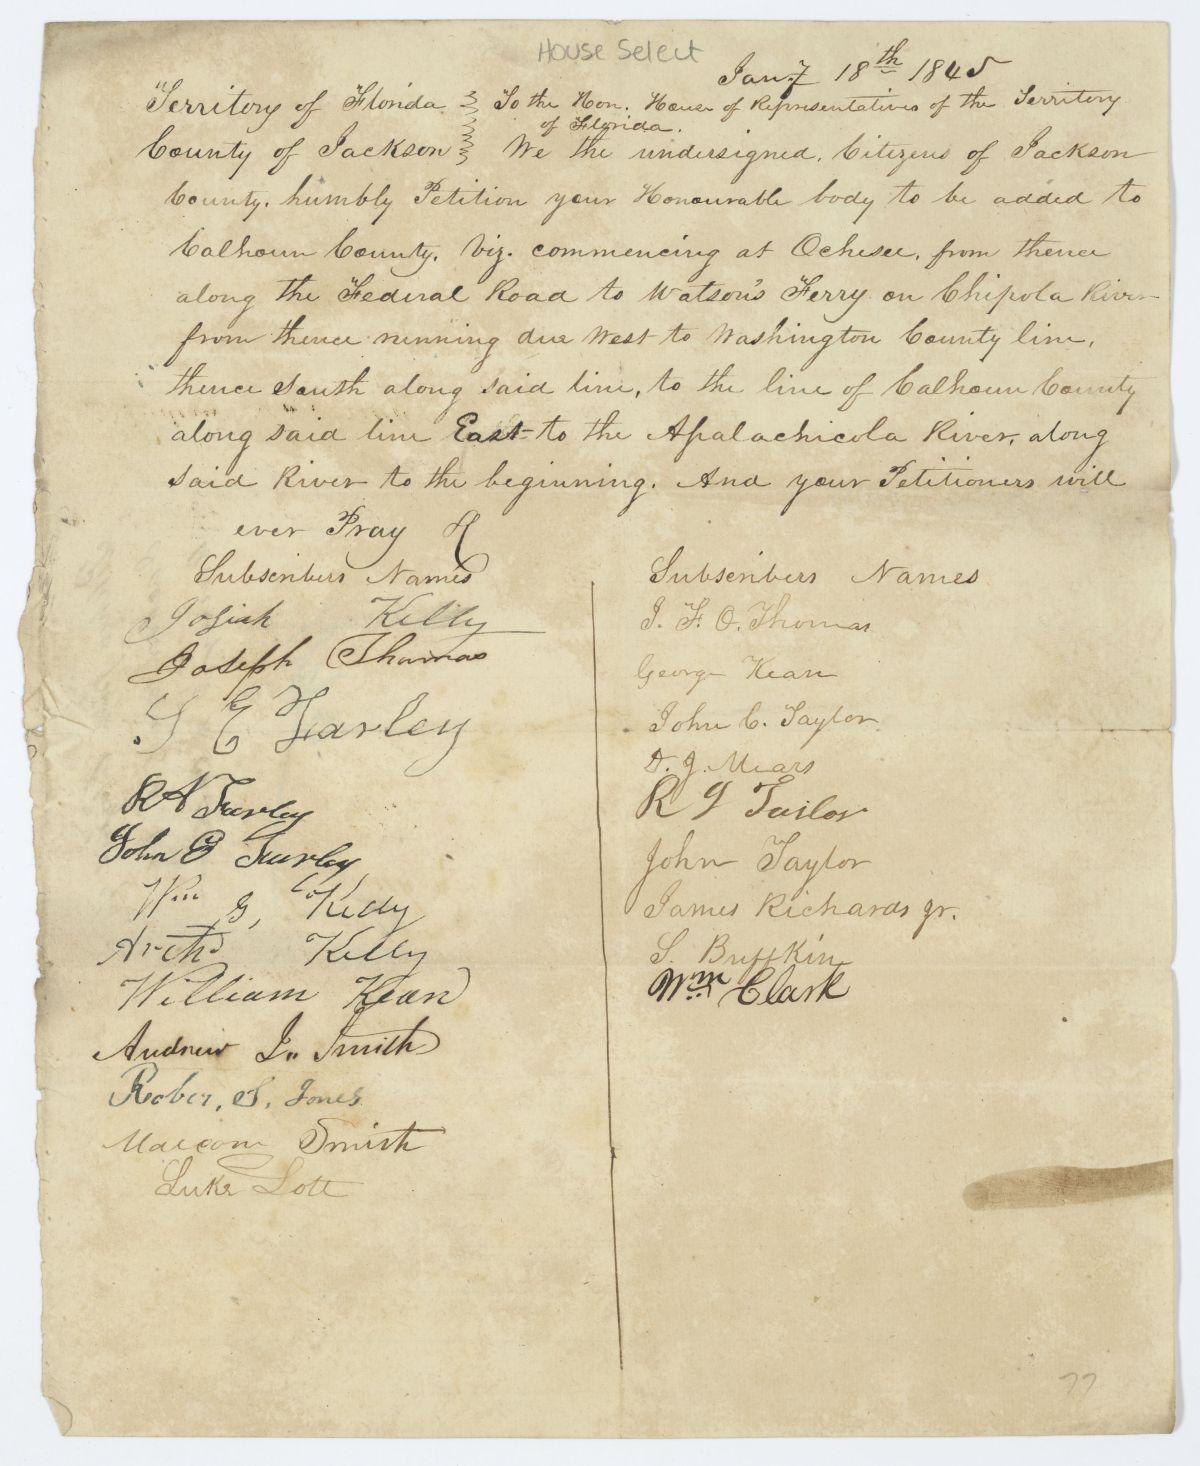 House Select
Jany 18th 1845
Territory of Florida To the Hon. House of Representatives of the Territory
of Florida.
County of Jackson We the undersigned, Citizens of Jackson
County, humbly Petition your Honourable body to be added to
Calhoun County, Viz. commencing at Ochesee, from thence
along the Federal Road to Watson's Ferry on Chipola River
from thence running due West to Washington County line,
thence South along said line, to the line of Calhoun County
along said line East to the Apalachicola River, along
said River to the beginning. And your Petitioners will
ever Pray &
Subscribers Names
Josiah Kelly
Joseph Thomas
S E Farley
R A Turley
John E Turley
Wm G, Kelly
Archd Kelly
William Kean
Andrew J. Smith
Rober, S, Jones
Malcom Smith
Luke Lott
Subscribers Names
J. F. O. Thomas
George Kean
John C. Taylor
D. J. Mears
R J Tailor
John Taylor
James Richards jr.
S. Buffkin
Wm Clark
77